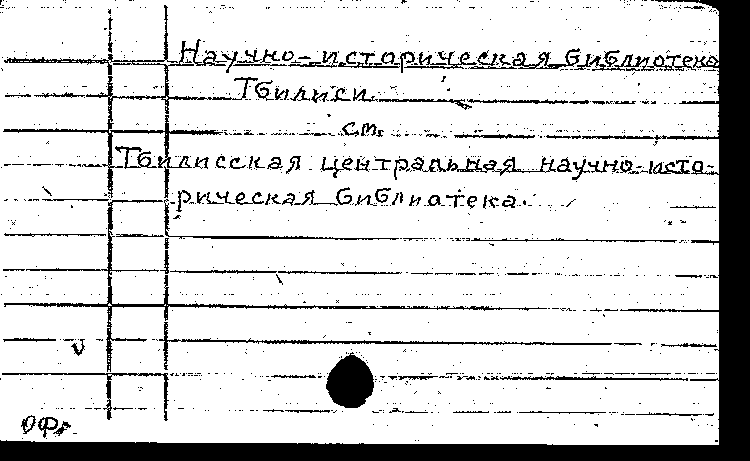 Научно-историческая библиотека
Тбилиси.
см.
Тбилисская центральная научно-исто-
рическая библиотека.
v